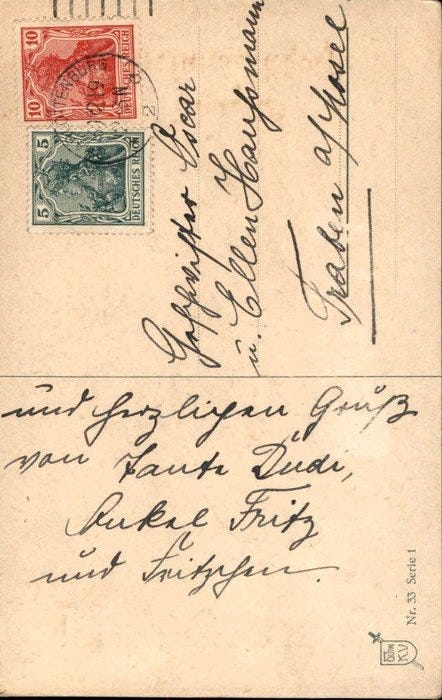 10
10
DEUTSCHES REICH
5
5
DEUTSCHES REICH
Geschwister Oscar
u. Ellen Haussmann
Traben a/Mosel
und herzlichen Gruß
von Tante Dudi,
Onkel Fritz
und Fritzchen.
Nr. 33 Serie 1